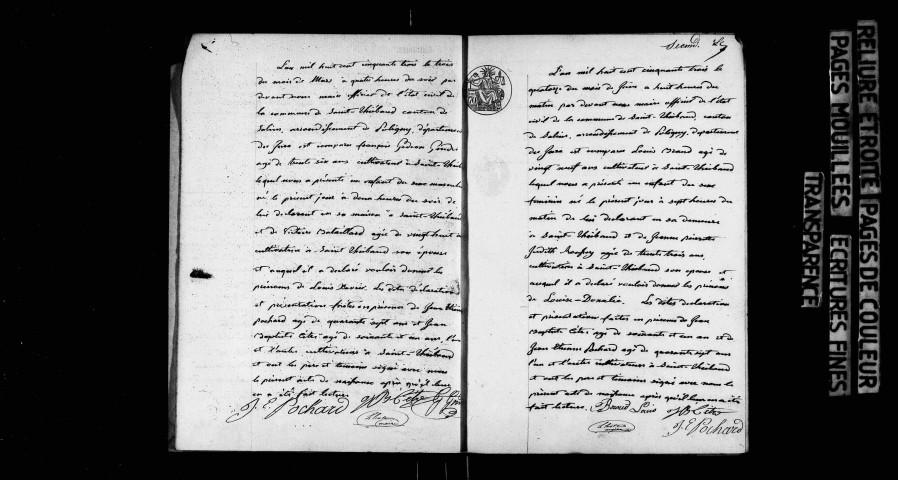 L'an mil huit cent cinquante trois le trois
du mois de Mars à quatre heures du soir par
devant nous maire officier de l'état civil de
la commune de Saint-Thiébaud canton de
Salins, arrondissement de Poligny, département
du Jura est comparu françois
agé de trente six ans cultivateur à Saint-Thiébaud
lequel nous a présenté un enfant du sexe masculin
né le présent jour à deux heures du soir de
lui déclarant en sa maison à Saint-Thiébaud
et de Bataillard agée de vingt huit
cultivatrice à Saint Thiébaud son épouse
et auquel il a déclaré vouloir donner les
prénoms de Louis Xavier. Les dites déclaration
et présentation faites en présence de Jean Etienne
Pochard agé de quarante sept ans et Jean
Baptiste agé de soixante et un ans, l'un
et l'autre cultivateurs à Saint-Thiébaud
et ont les père et témoins signé avec nous
le présent acte de naissance après qu'il leur
en a été fait lecture.
J. E. Pochard
Second.
L'an mil huit cent cinquante trois le
quatorze du mois de Juin à huit heures du
matin par devant nous maire officier de l'état
civil de la commune de Saint-Thiébaud, canton
de Salins, arrondissement de Poligny, département
du Jura est comparu Louis agé de
vingt neuf ans cultivateur à Saint Thiébaud
lequel nous a présenté un enfant du sexe
féminin né le présent jour à sept heures du
matin de lui déclarant en sa demeure
à Saint Thiébaud et de Jeanne pierrette
Judith agée de trente trois ans,
cultivatrice à Saint-Thiébaud son épouse et
auquel il a déclaré vouloir donner les prénoms
de Louise-Donalie. Les dites déclaration
et présentation faites en présence de Jean
Baptiste agé de soixante et un ans et de
Jean Etienne Pochard agé de quarante sept ans
l'un et l'autre cultivateurs à Saint Thiébaud
et ont les père et témoins signé avec nous le
présent acte de naissance après qu'il leur en a été
fait lecture. Louis
J. E. Pochard
RELIURE ETROITE PAGES DE COULEUR
PAGES MOUILLEES ECRITURES FINES
TRANSPARENCE